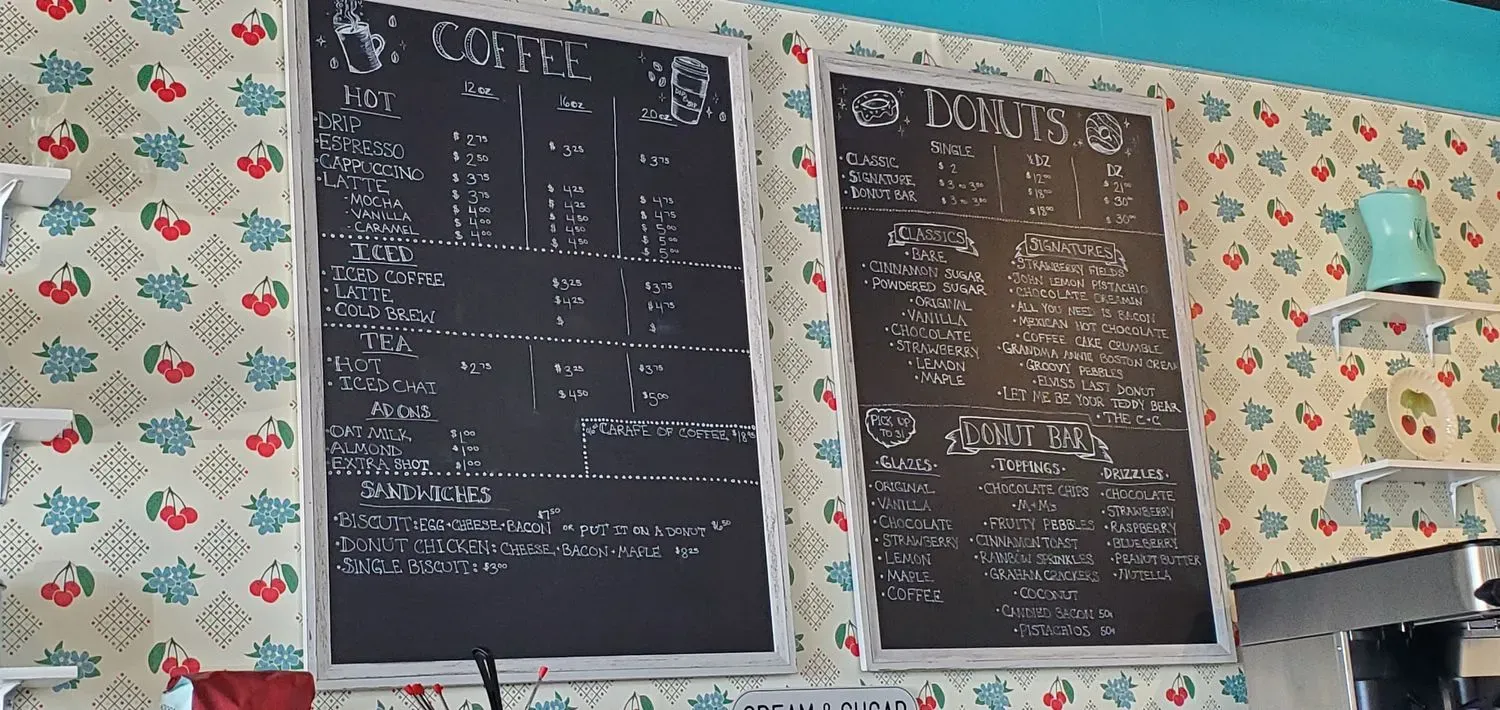 COFFEE
12 oz 16 oz 20 oz
HOT
•DRIP $2.75 $3.25 $3.75
•ESPRESSO $2.50
•CAPPUCCINO $3.75 $4.25 $4.75
•LATTE $3.75 $4.25 $4.75
-MOCHA $4.00 $4.50 $5.00
-VANILLA $4.00 $4.50 $5.00
-CARAMEL $4.00 $4.50 $5.00
ICED
•ICED COFFEE $3.25 $3.75
•LATTE $4.25 $4.75
•COLD BREW $ $
TEA
•HOT $2.75 $3.25 $3.75
•ICED CHAI $4.50 $5.00
AD ONS
•OAT MILK $1.00
•ALMOND $1.00
•EXTRA SHOT $1.00
CARAFE OF COFFEE
SANDWICHES
•BISCUIT: EGG•CHEESE•BACON $7.50 OR PUT IT ON A DONUT
•DONUT CHICKEN: CHEESE•BACON•MAPLE $8.25
•SINGLE BISCUIT: $3.00
DONUTS
SINGLE ½DZ DZ
•CLASSIC $2 $12.00 $21.00
•SIGNATURE $18.00 $30.00
•DONUT BAR $18.00 $30.00
CLASSICS
•BARE
•CINNAMON SUGAR
•POWDERED SUGAR
•ORIGINAL
•VANILLA
•CHOCOLATE
•STRAWBERRY
•LEMON
•MAPLE
SIGNATURES
•STRAWBERRY FIELDS
•JOHN LEMON PISTACHIO
•CHOCOLATE DREAMIN
•ALL YOU NEED IS BACON
•MEXICAN HOT CHOCOLATE
•COFFEE CAKE CRUMBLE
•GRANDMA ANNIE BOSTON CREAM
•GROOVY PEBBLES
•ELVISS LAST DONUT
•LET ME BE YOUR TEDDY BEAR
•THE C•C
PICK UP
TO 3!
DONUT BAR
•GLAZES•
•ORIGINAL
VANILLA
•CHOCOLATE
•STRAWBERRY
•LEMON
•MAPLE
•COFFEE
•TOPPINGS•
•CHOCOLATE CHIPS
•M+Ms
•FRUITY PEBBLES
•CINNAMON TOAST
•RAINBOW SPRINKLES
•GRAHAM CRACKERS
•COCONUT
•CANDIED BACON 50¢
•PISTACHIOS 50¢
DRIZZLES•
•CHOCOLATE
•STRAWBERRY
•RASPBERRY
•BLUEBERRY
•PEANUT BUTTER
•NUTELLA
CREAM & SUGAR